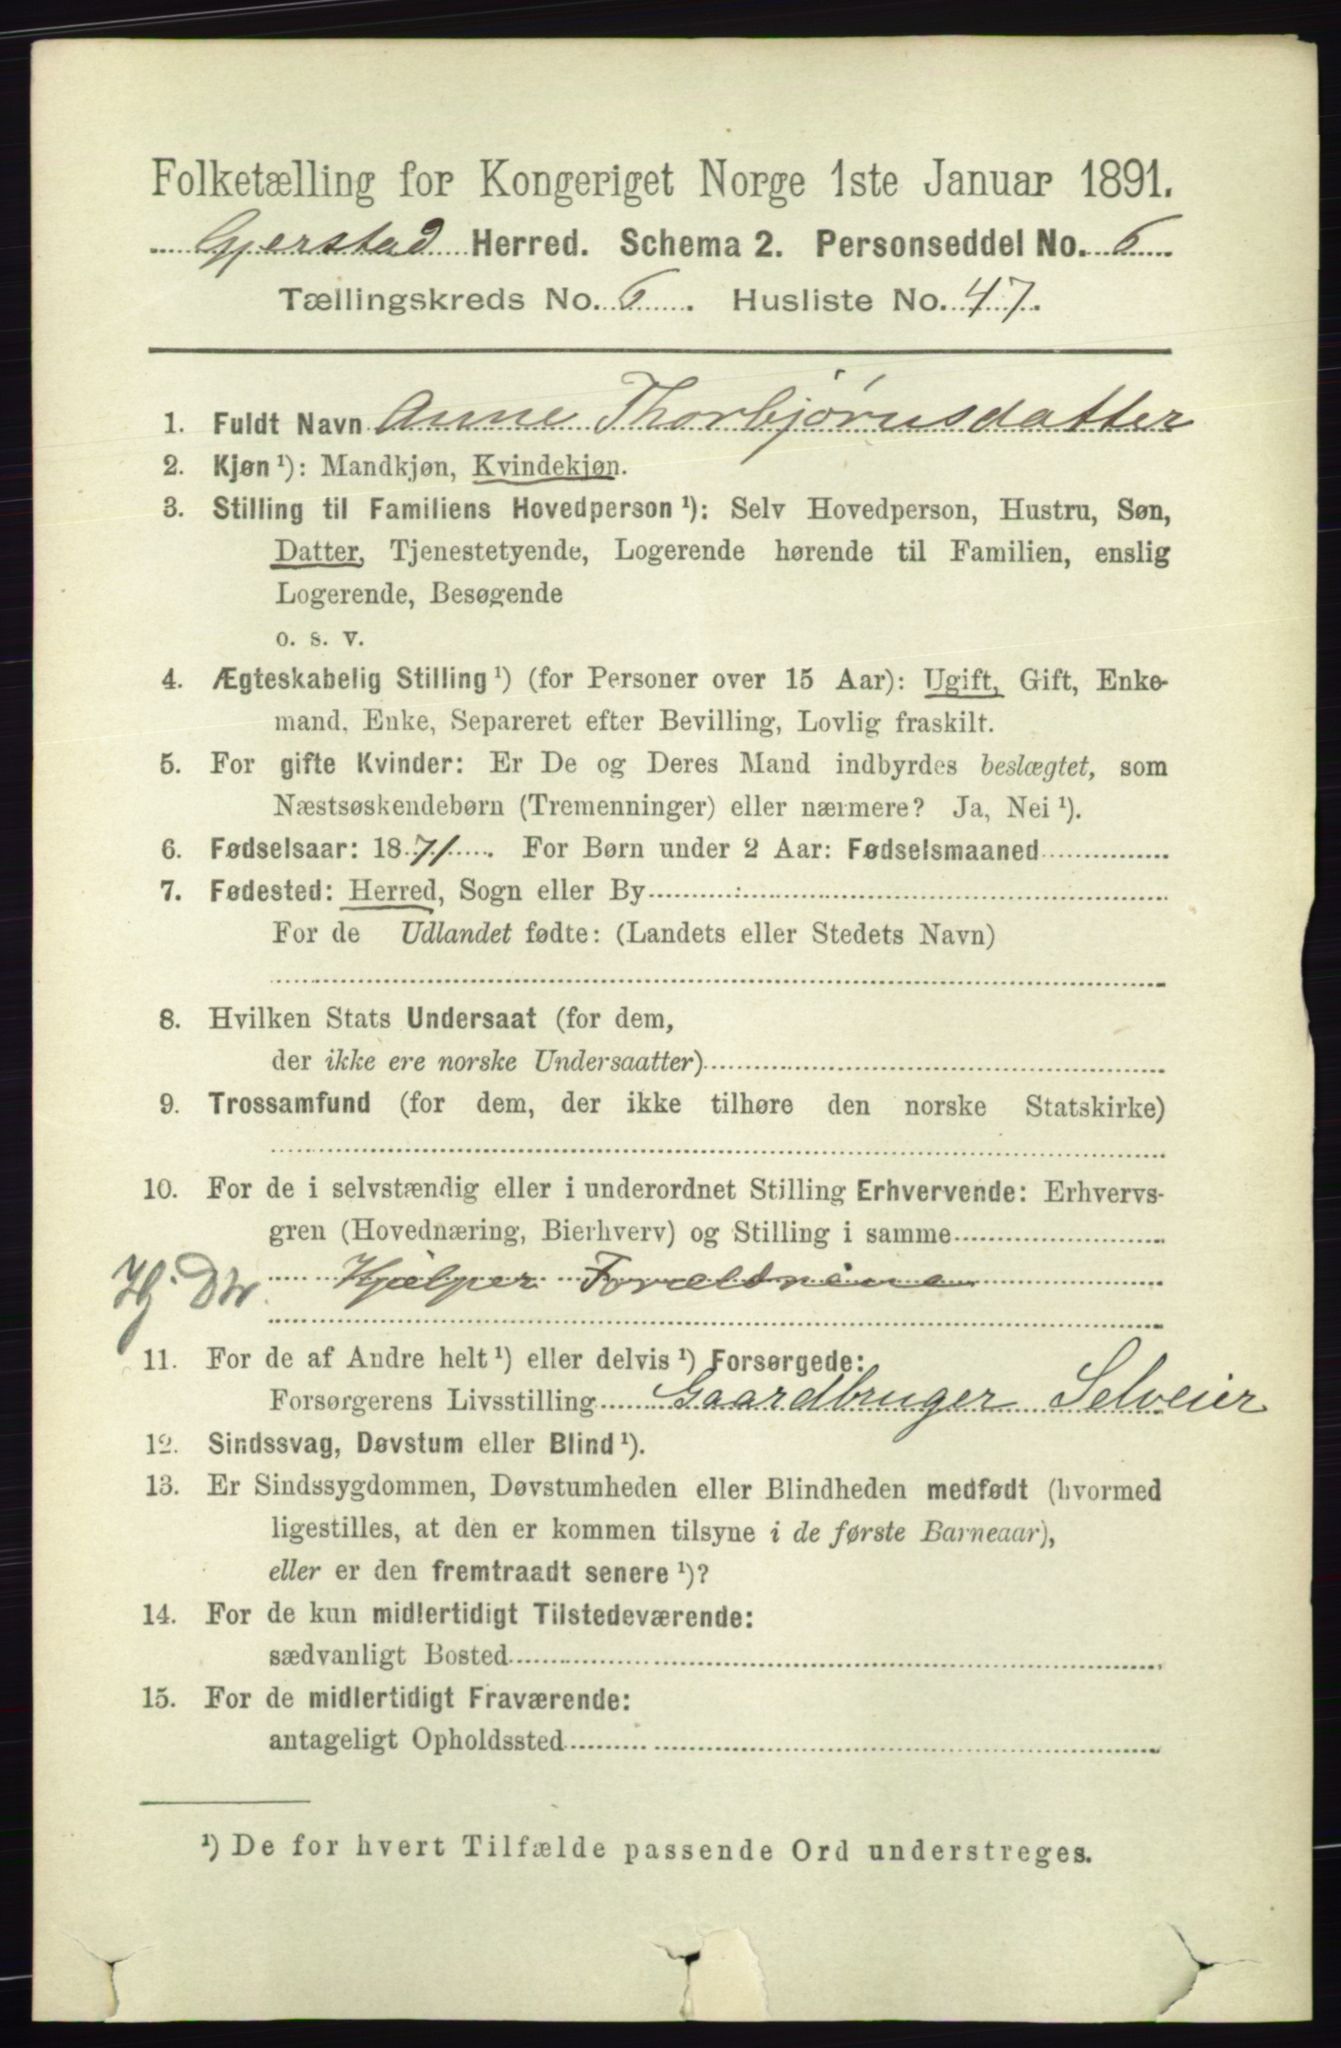 Folketælling for Kongeriget Norge 1ste Januar 1891.
Gjerstad Herred. Schema 2. Personseddel No. 6
Tællingskreds No. 6. Husliste No. 47.
1. Fuldt Navn Anne Thorbjørnsdatter
2. Kjøn ¹): Mandkjøn, Kvindekjøn.
3. Stilling til Familiens Hovedperson ¹): Selv Hovedperson, Hustru, Søn,
Datter, Tjenestetyende, Logerende hørende til Familien, enslig
Logerende, Besøgende
o. s. v.
4. Ægteskabelig Stilling ¹) (for Personer over 15 Aar): Ugift, Gift, Enke-
mand, Enke, Separeret efter Bevilling, Lovlig fraskilt.
5. For gifte Kvinder: Er De og Deres Mand indbyrdes beslægtet, som
Næstsøskendebørn (Tremenninger) eller nærmere? Ja, Nei ¹).
6. Fødselsaar: 1871. For Børn under 2 Aar: Fødselsmaaned
7. Fødested: Herred, Sogn eller By
For de Udlandet fødte: (Landets eller Stedets Navn)
8. Hvilken Stats Undersaat (for dem,
der ikke ere norske Undersaatter)
9. Trossamfund (for dem, der ikke tilhøre den norske Statskirke)
10. For de i selvstændig eller i underordnet Stilling Erhvervende: Erhvervs-
gren (Hovednæring, Bierhverv) og Stilling i samme
Hj Dtr. Hjælper Forældrene
11. For de af Andre helt ¹) eller delvis ¹) Forsørgede:
Forsørgerens Livsstilling Gaardbruger Selveier
12. Sindssvag, Døvstum eller Blind ¹).
13. Er Sindssygdommen, Døvstumheden eller Blindheden medfødt (hvormed
ligestilles, at den er kommen tilsyne i de første Barneaar),
eller er den fremtraadt senere ¹)?
14. For de kun midlertidigt Tilstedeværende:
sædvanligt Bosted
15. For de midlertidigt Fraværende:
antageligt Opholdssted
¹) De for hvert Tilfælde passende Ord understreges.